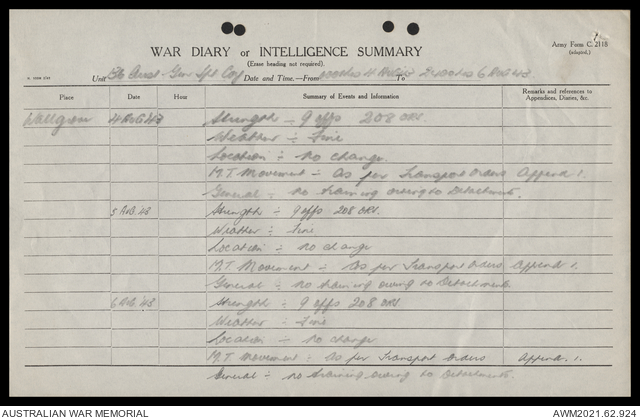 WAR DIARY or INTELLIGENCE SUMMARY
(Erase heading not required).
Army Form C. 2118
(adapted.)
Unit Aust. Gen Tpt Coy Date and Time.—From 4 Aug 43 To 2400 hrs 6 Aug 43
Place Date Hour Summary of Events and Information Remarks and references to Appendices, Diaries, &c.
Wallgrove 4 Aug 43 Strength :- 9 offs 208 ORs.
Weather :- Fine
Location :- no change.
M.T. Movement :- As per Transport Orders Append 1.
General :- no training owing to Detachments.
5 Aug 43 Strength :- 9 offs 208 ORs.
Weather :- Fine
Location :- no change
M.T. Movement :- as per Transport Orders Append 1.
General :- no training owing to Detachments
6 Aug 43 Strength :- 9 offs 208 ORs.
Weather :- Fine
Location :- no change
M.T. Movement :- as per Transport Orders Append. 1.
General :- no training owing to Detachments.
AUSTRALIAN WAR MEMORIAL AWM2021.62.924